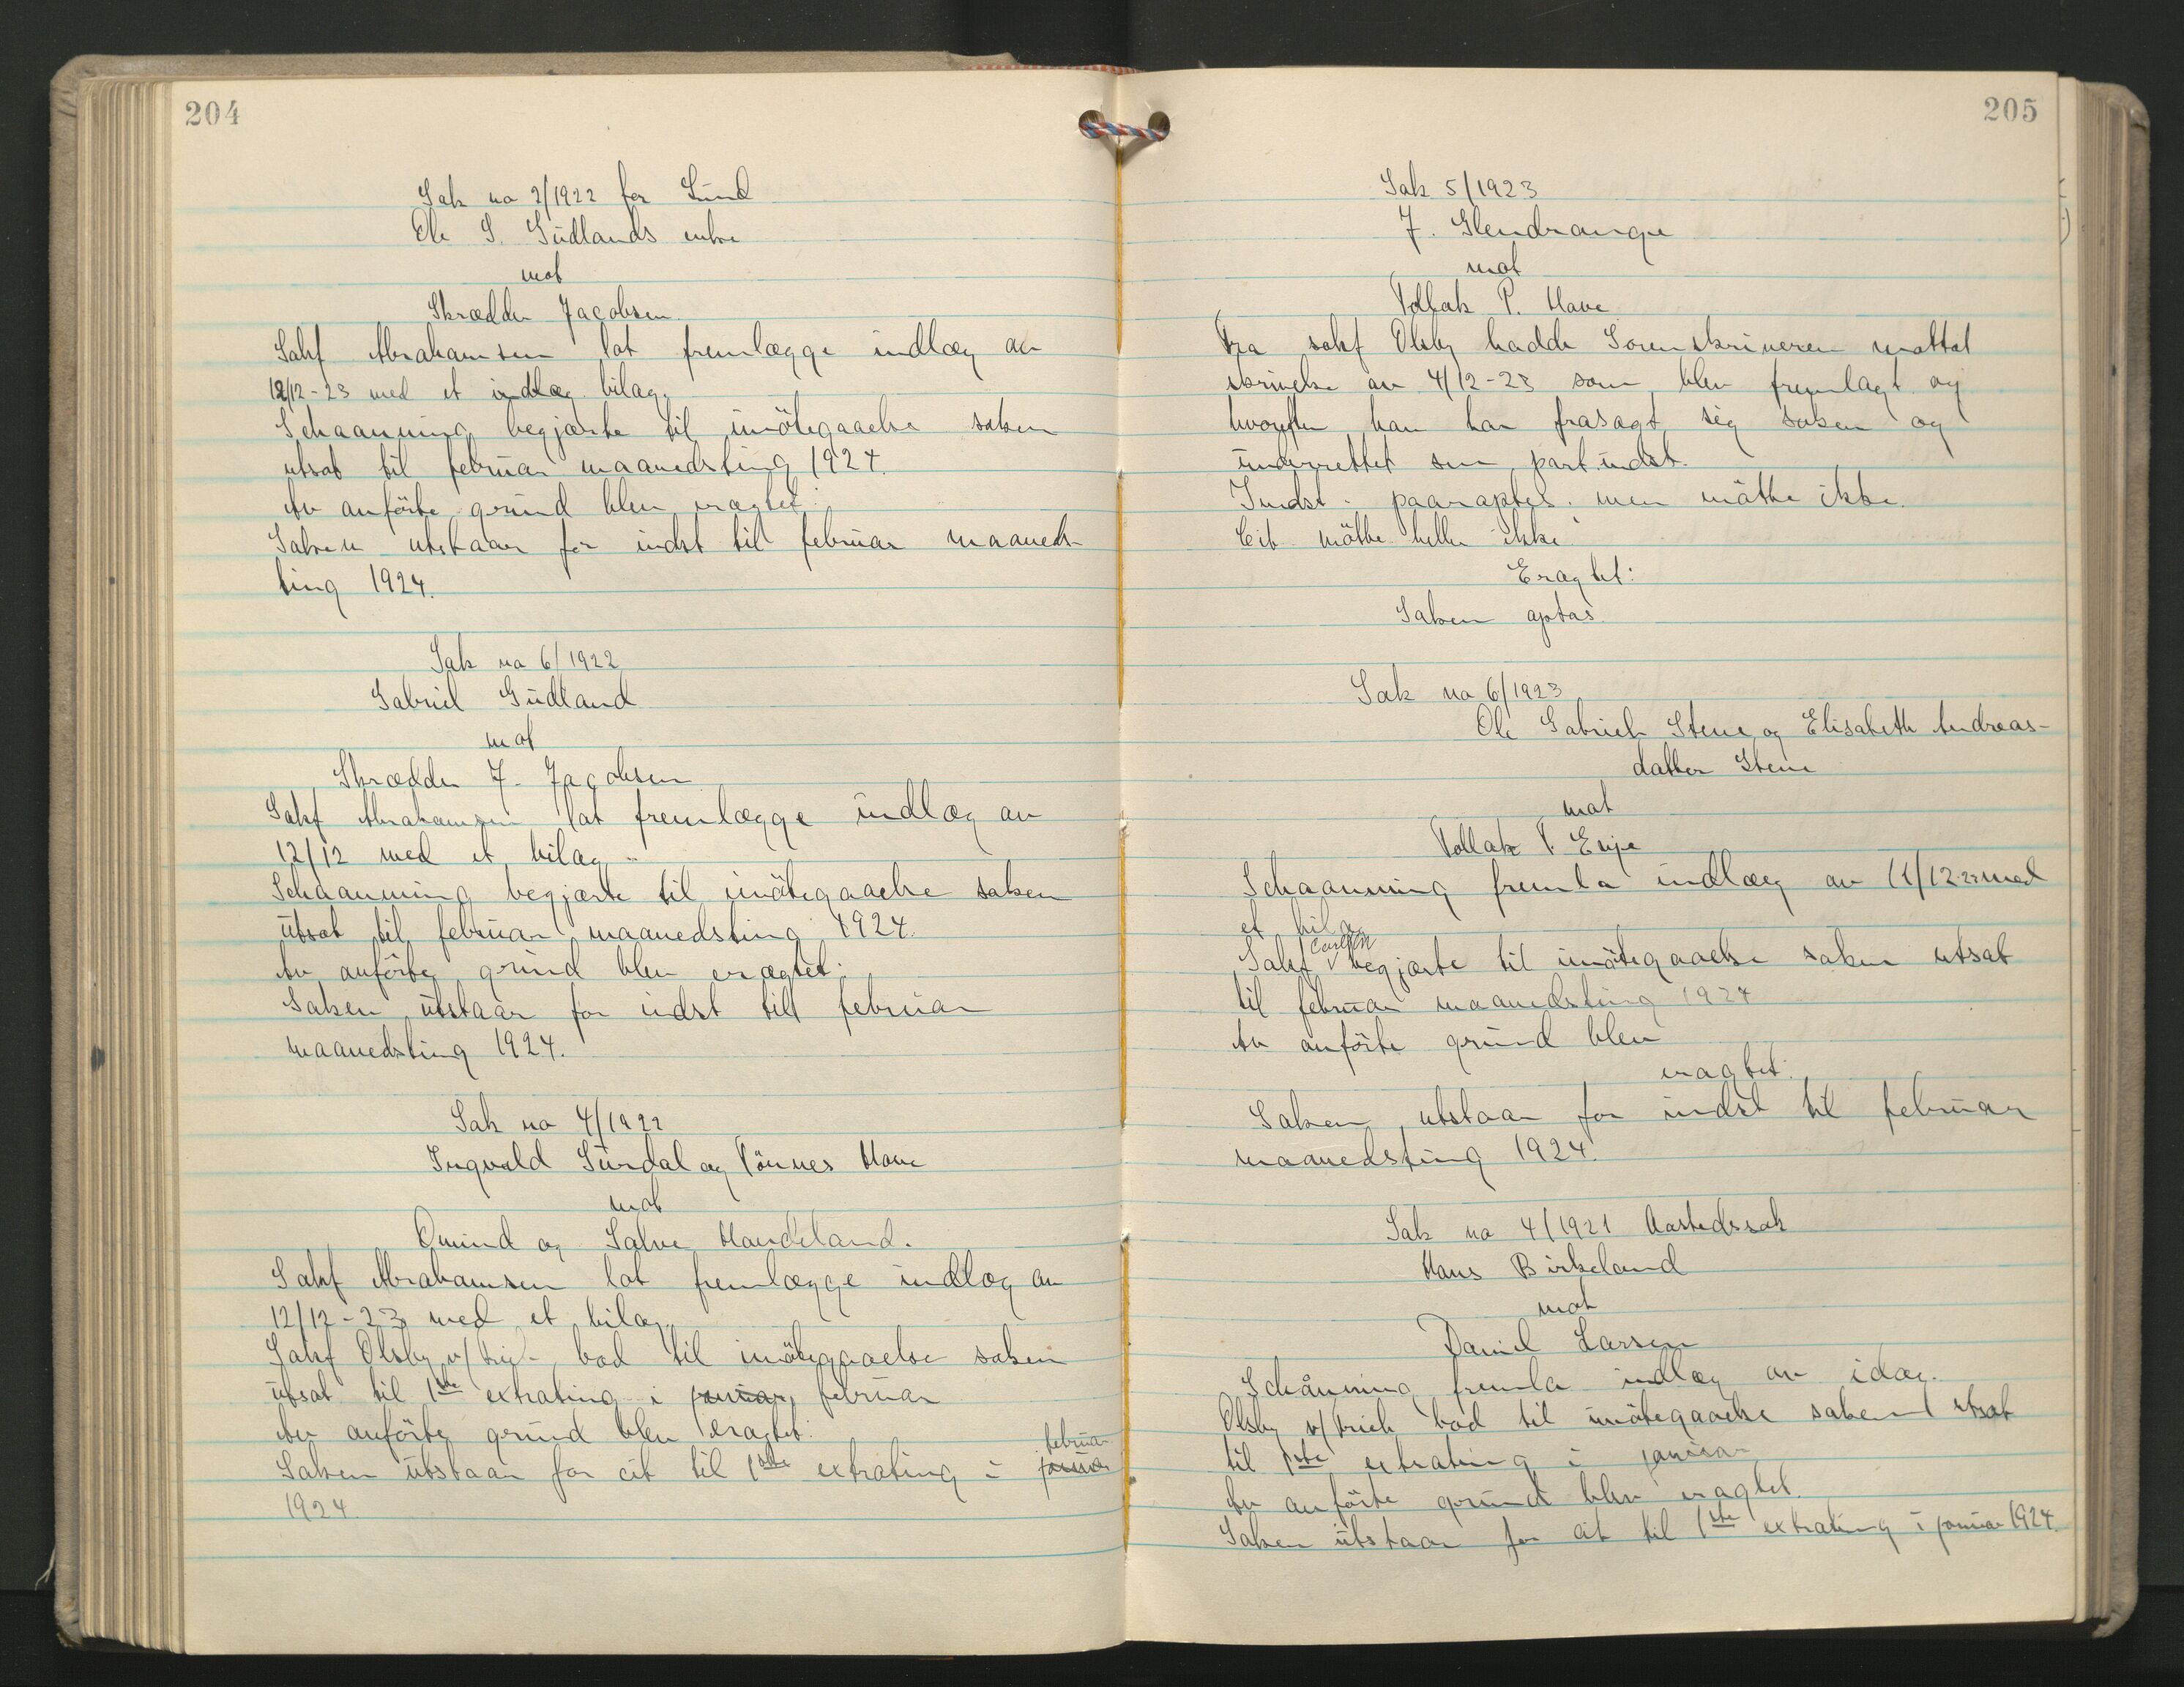 204
Sak no 2/1922 for Lund
Ole G. Gudlands enke
mot
Skrædder Jacobsen
Sakf Abrahamsen lot fremlægge indlæg av
12/12-23 med et indlæg bilag.
Schaanning begjærte til imøtegaaelse saken
utsat til februar maanedsting 1924.
Av anførte grund blev eragtet:
Saken utstaar for indst til februar maaneds-
ting 1924.
Sak no 6/1922
Gabriel Gudland
mot
Skrædder J. Jacobsen
Sakf Abrahamsen lot fremlægge indlæg av
12/12 med et bilag
Schaanning begjærte til imøtegaaelse saken
utsat til februar maanedsting 1924.
Av anførte grund blev eragtet:
Saken utstaar for indst till februar
maanedsting 1924.
Sak no 4/1922
Ingvald Surdal og Tönnes Haue
mot
Omund og Salve Haudeland.
Sakf Abrahamsen lot fremlægge indlæg av
12/12-23 med et bilag
Sakf Olsby v/ bad til imøtegaaelse saken
utsat til 1ste extrating i januar, februar
Av anførte grund blev eragtet:
Saken utstaar for cit til 1ste extrating i januar februar
1924
205
Sak 5/1923
J. Glendrange
mot
Tollak P. Haue
Fra sakf Olsby hadde Sorenskriveren mottat
skrivelse av 4/12-23 som blev fremlagt og
hvorefter han har frasagt sig saken og
underrettet sin part. indst.
Indst. paaraaptes. men møtte ikke.
Cit møtte heller ikke
Eragtet:
Saken optas
Sak no 6/1923
Ole Gabriels Stene og Elisabeth Andreas-
datter Stene
mot
Tollak T. Eije
Schaanning fremla indlæg av 11/12-23 med
et bilag
Sakf Carlsen begjærte til imøtegaaelse saken utsat
til februar maanedsting 1924
Av anførte grund blev
eragtet:
Saken utstaar for indst til februar
maanedsting 1924.
Sak no 4/1921 Aastedssak
Hans Birkeland
mot
Daniel Larsen
Schånning fremla indlæg av idag.
Olsby v/ bad til imøtegaaelse saken utsat
til 1ste extrating i januar
Av anførte grund blev eragtet.
Saken utstaar for cit til 1ste extrating i januar 1924.